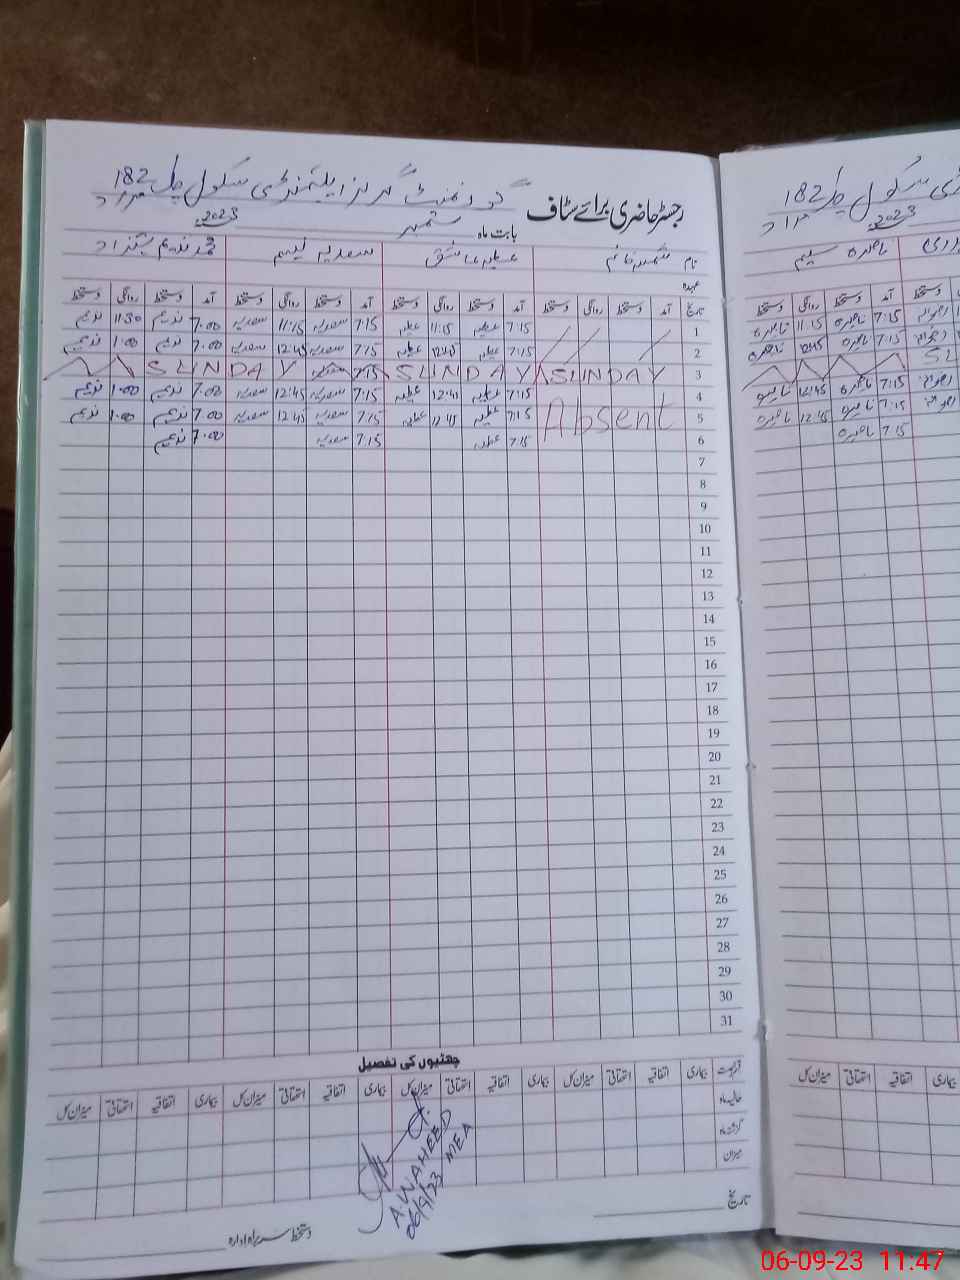 گورنمنٹ گرلز ایلیمنٹری سکول چک 182
رجسٹر حاضری برائے سٹاف
بابت ماہ ستمبر 2023
نام
عہدہ
تاریخ آمد دستخط روانگی دستخط آمد دستخط روانگی دستخط آمد دستخط روانگی دستخط آمد دستخط روانگی دستخط
1 7:15 عطیہ 11:15 عطیہ 7:15 سعدیہ 11:15 سعدیہ 7:00 ندیم 11:30 ندیم
2 7:15 عطیہ 12:45 عطیہ 7:15 سعدیہ 12:45 سعدیہ 7:00 ندیم 1:00 ندیم
3 SUNDAY SUNDAY SUNDAY
4 7:15 عطیہ 12:45 عطیہ 7:15 سعدیہ 12:45 سعدیہ 7:00 ندیم 1:00 ندیم
5 Absent 7:15 عطیہ 12:45 عطیہ 7:15 سعدیہ 12:45 سعدیہ 7:00 ندیم 1:00 ندیم
6 7:15 عطیہ 7:15 سعدیہ 7:00 ندیم
7
8
9
10
11
12
13
14
15
16
17
18
19
20
21
22
23
24
25
26
27
28
29
30
31
چھٹیوں کی تفصیل
بیماری اتفاقیہ استحقاقی میزان کل بیماری اتفاقیہ استحقاقی میزان کل بیماری اتفاقیہ استحقاقی میزان کل بیماری اتفاقیہ استحقاقی میزان کل
حالیہ ماہ
گزشتہ ماہ
میزان
A.WAHEED
06/9/23 MEA
تاریخ
دستخط سربراہ ادارہ
سکول چک 182
2023
ناصرہ سلیم
آمد دستخط روانگی دستخط
7:15 ناصرہ 11:15 ناصرہ
7:15 ناصرہ 12:45 ناصرہ
7:15 ناصرہ 12:45 ناصرہ
7:15 ناصرہ 12:45 ناصرہ
7:15 ناصرہ
بیماری اتفاقیہ استحقاقی میزان کل
06-09-23 11:47